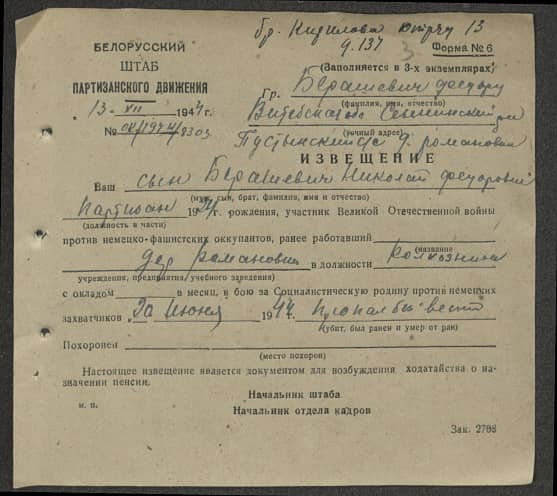 бр. Кирилова
д. 137
БЕЛОРУССКИЙ
ШТАБ
ПАРТИЗАНСКОГО ДВИЖЕНИЯ
13 - VII 1944 г.
№
3
Форма № 6
(Заполняется в 3-х экземплярах)
Гр. Берашевич Федору
(фамилия, имя, отчество)
Витебская обл
(точный адрес)
д. Романовка
ИЗВЕЩЕНИЕ
Ваш сын Берашевич Николай Федорович
(муж, сын, брат, фамилия, имя и отчество)
партизан 19 г. рождения, участник Великой Отечественной войны
(должность в части)
против немецко-фашистских оккупантов, ранее работавший
(название
дер Романовка в должности колхозника
учреждения, предприятия, учебного заведения)
с окладом в месяц, в бою за Социалистическую родину против немецких
захватчиков 20 июня 1944 г. пропал без вести
(убит, был ранен и умер от ран)
Похоронен
(место похорон)
Настоящее извещение является документом для возбуждения ходатайства о на-
значении пенсии.
Начальник штаба
м. п.
Начальник отдела кадров
Зак. 2708